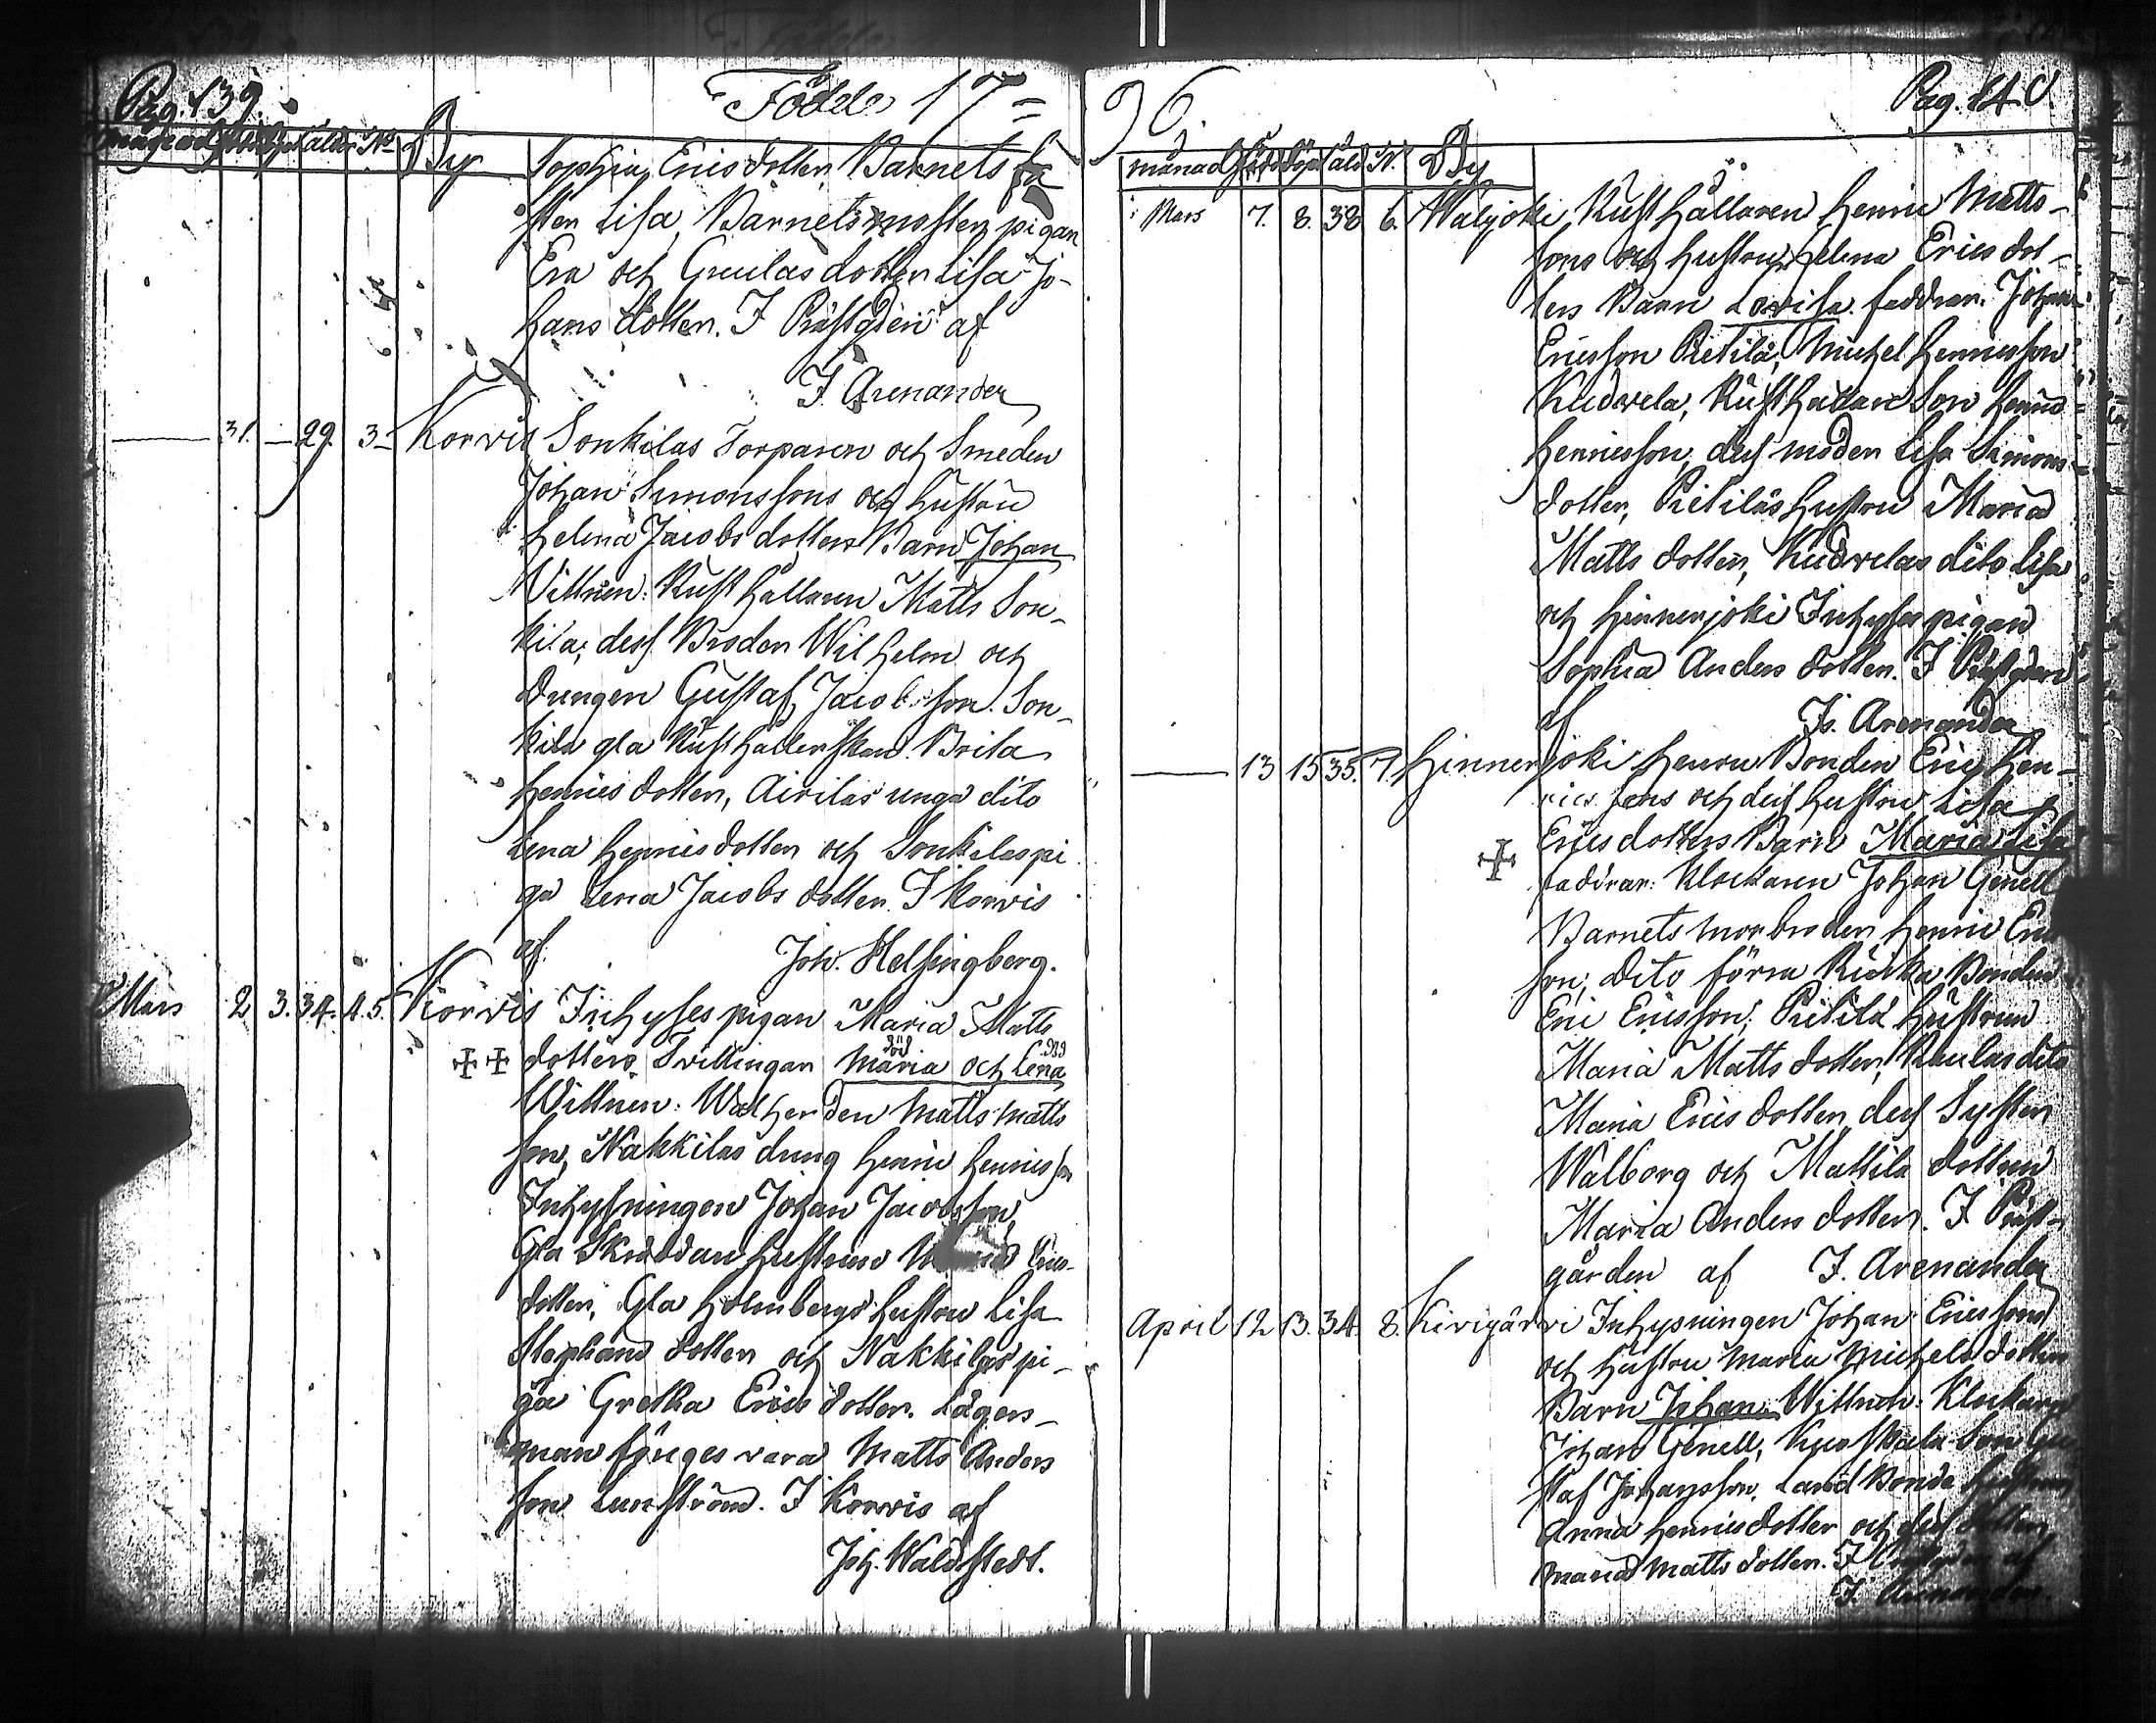 Pag. 139.
Födde 17=
månad född döpt ålder No By
Sophia Ericsdotter, Barnets fa
ster Lisa, Barnets moster pigan
Eva och Grculas dotter Lisa Jo-
hans dotter. I Prästgden af
J. Arenander
31. — 29. 3 — Korvis Sonkilas Torparen och Smeden
Johan Simonssons och hustru
Helena Jacobs dotters Barn Johan
Vittnen: Rusthållaren Matts Son-
kila, dess Broder Wilhelm och
Drengen Gustaf Jacobsson. Son-
kila gla Rusthållerskan Brita
Henricsdotter, Airilas unga dito
Lena Henricsdotter och Sonkilas pi
ga Lena Jacobs dotter. I Korvis
af Joh. Helsingberg.
Mars 2 3. 34. 4.5. Korvis Inhyses pigan Maria Matts
död död
dotters Tvillingar Maria och Lena
Wittnen: Matts Matts
son, Nakkilas dreng Henric Henricsson
Inhysningen Johan Jacobsson,
Gla hustrun Erics-
dotter, Gla Holmbergs hustru Lisa
Stephans dotter och Nakkilas pi-
ga Gretha Erics dotter. Lägers-
man föruges vara Matts Anders
son Lunström. I Korvis af
Joh. Waldstedt.
96.
Pag. 140
månad född döpt åld. N. By
Mars 7. 8. 38 6. Waljoki Rusthållaren Henric Matts-
sons och hustrun Helena Erics dot-
ters Barn Lovisa. faddrar. Johan
Ericsson Pietilä, Michel Henricsson
Kudvela, Rusthållare Son Henric
Henricsson, dess moder Lisa Simons-
dotter, Pietiläs hustru Maria
Matts dotter, Kudvelas dito Lisa
och Hinnerjoki Inhyses pigan
Sophia Anders dotter. I Prästgården
af Js. Arenander
13 15 35. 7. Hinnerjoki Bonden Eric Hen-
rics sons och dess hustru Lisa
Ericsdotters Barn Maria Lisa
faddrar: Klockaren Johan Genell
Barnets morbroder Henric Eric
son, dito förra Bonden
Eric Ericsson, Pietilä hustrun
Maria Matts dotter, dito
Maria Erics dotter, dess Syster
Walborg och Mattila dottren
Maria Anders dotter. I Präst-
gården af J. Arenander
April 12 13. 34. 8. Kirijärvi Inhysningen Johan Ericssons
och hustru Maria Michels dotters
Barn Johan. Wittnen: Klockaren
Johan Genell, Son Gu
staf Johansson, Land Bonde hustrun
Anna Henricsdotter och dess dotter
Maria Matts dotter. I af
J. Arenander.